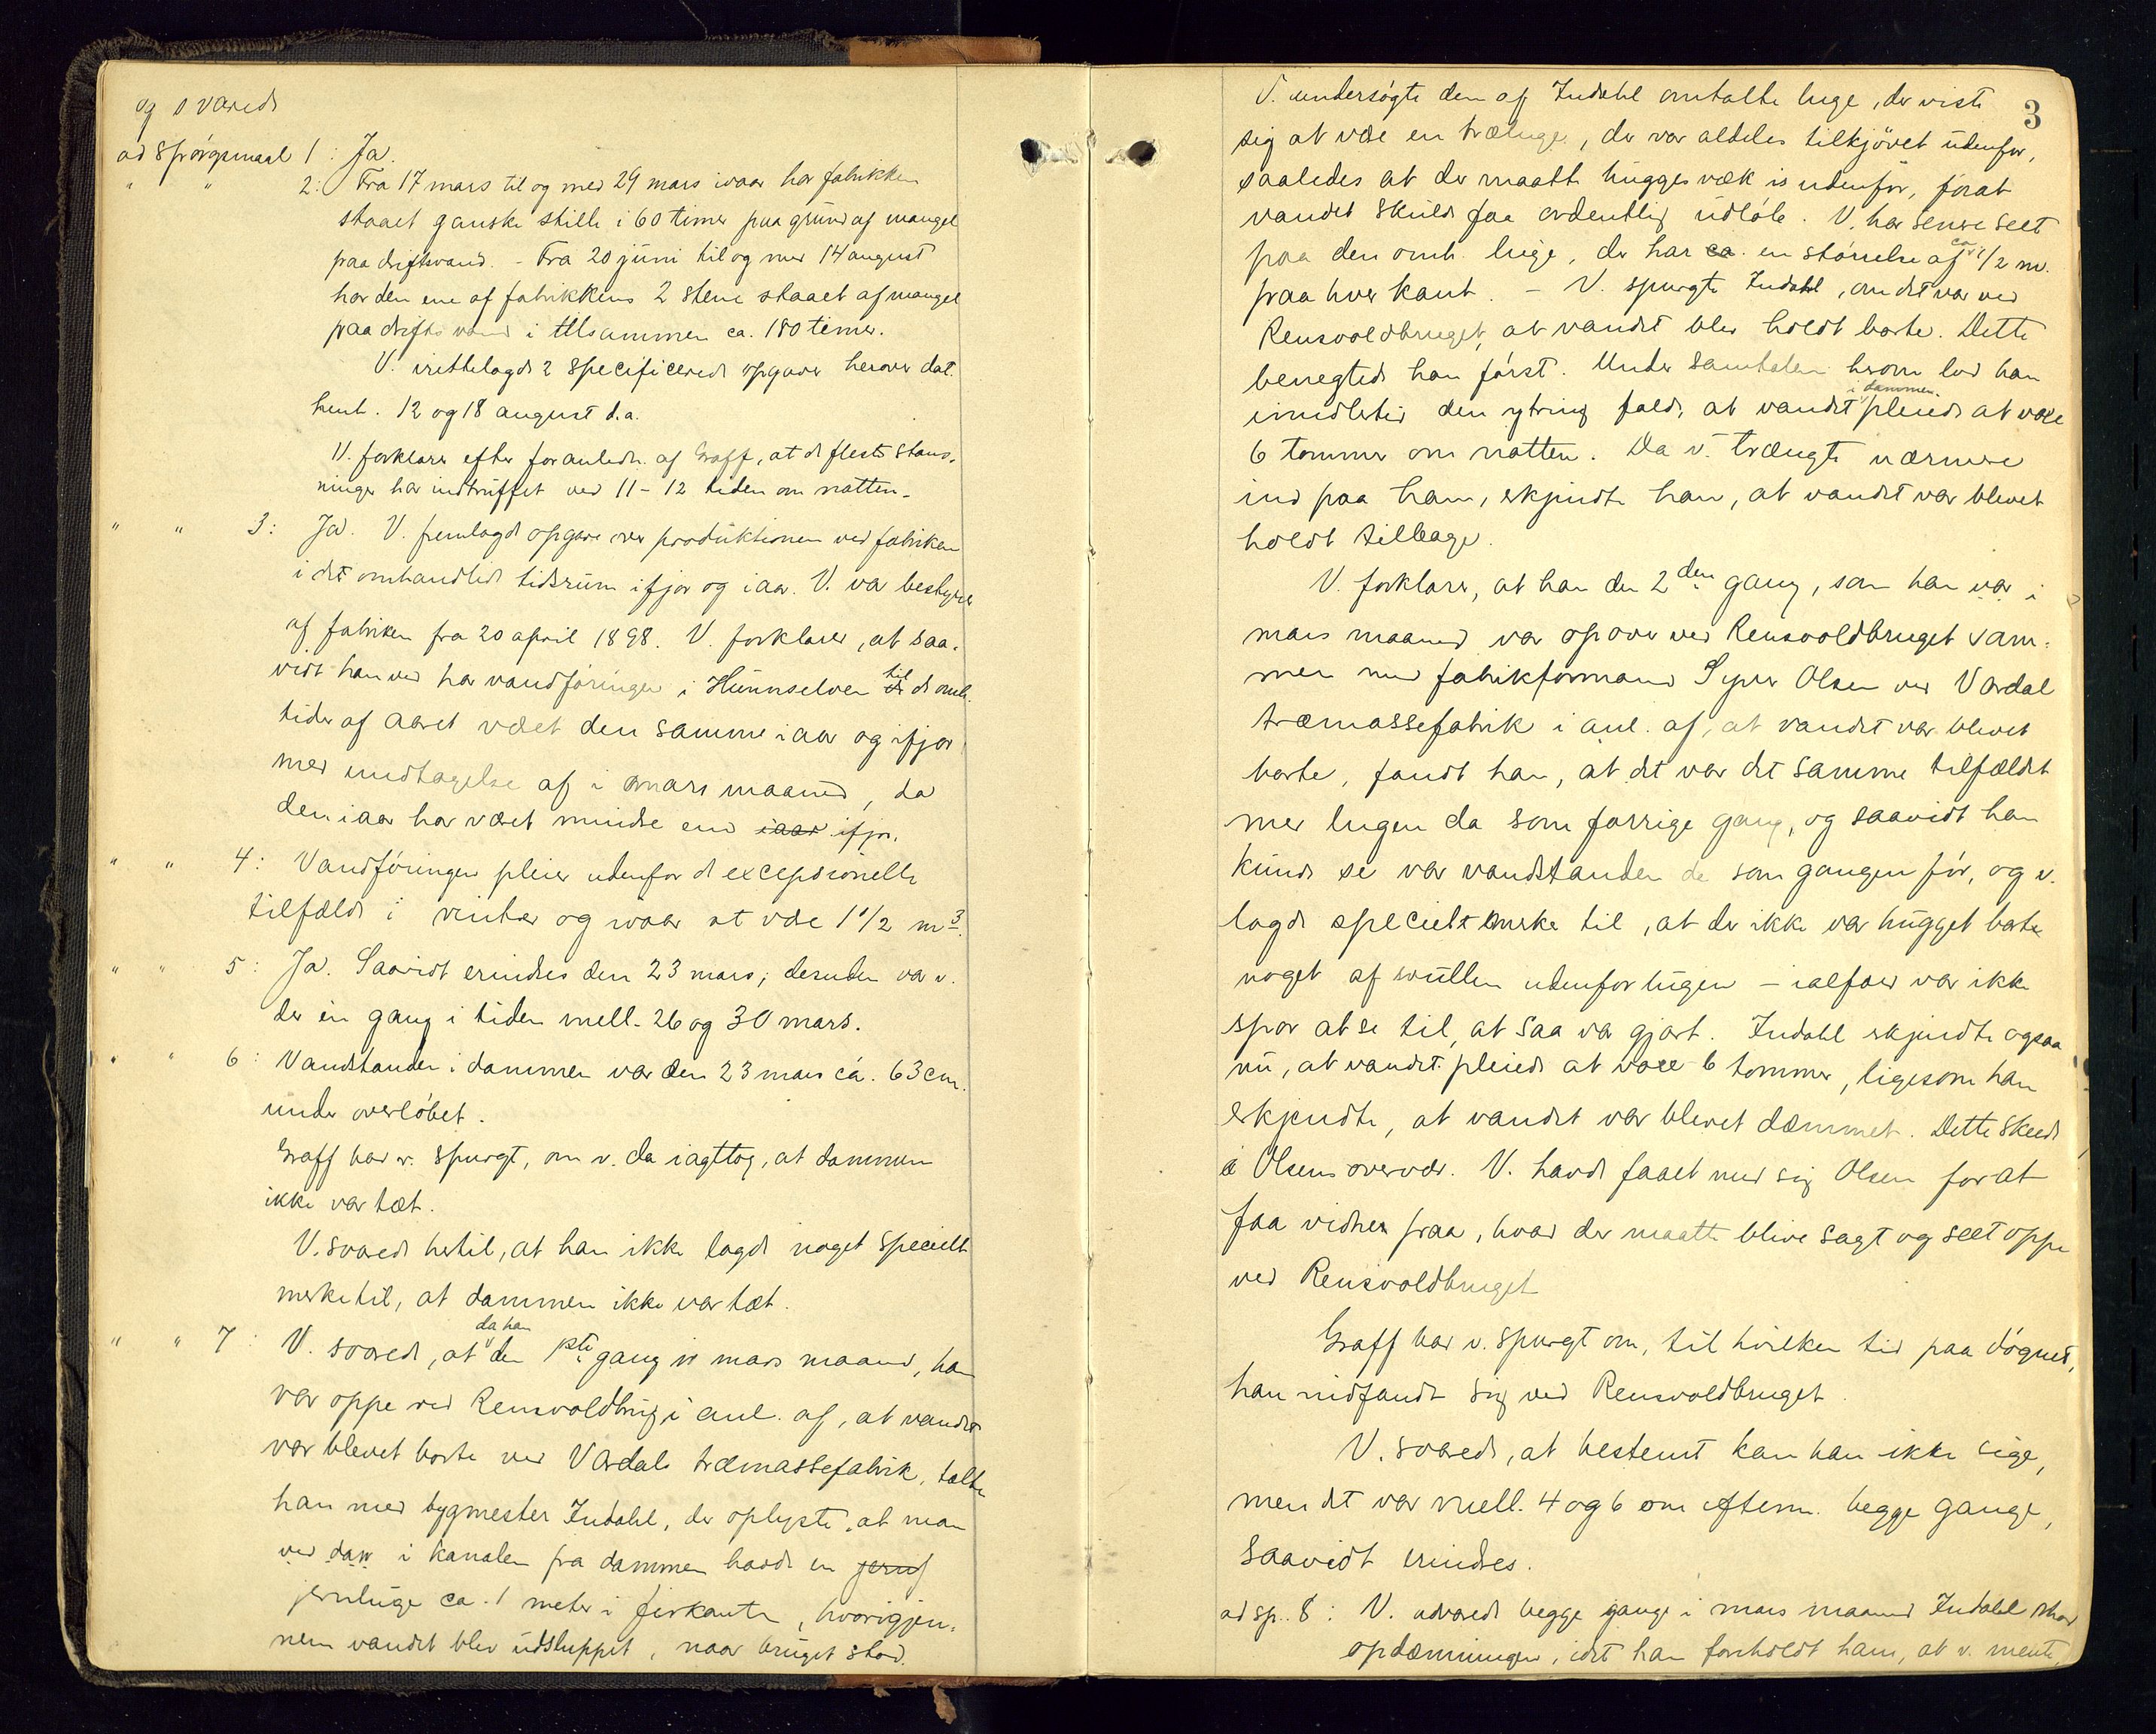 og svarede
ad Spörgsmaal 1 : Ja.
" " 2: Fra 17 mars til og med 29 mars ivaar har fabrikken
staaet ganske stille i 60 timer paa grund af mangel
paa driftsvand. - Fra 20 juni til og med 14 august
har den ene af fabrikkens 2 stene staaet af mangel
paa driftsvand i tilsammen ca. 180 timer.
V. irettelagde 2 specificerede opgaver herover dat.
henh. 12 og 18 august d.a.
V. forklarer efter foranledn. af Graff, at de fleste stans-
ninger har indtruffet ved 11 - 12 tiden om natten.
" " 3: Ja. V. fremlagde opgave over produktionen ved fabriken
i det omhandlede tidsrum ifjor og iaar. V. var bestyrer
af fabriken fra 20 april 1898. V. forklarer, at saa-
vidt han ved har vandföringen i Hunnselven til de omh.
tider af aaret været den samme iaar og ifjor
med undtagelse af i mars maaned, da
den iaar har været mindre end iaar ifjor.
" " 4: Vandföringen pleier udenfor de exceptionelle
tilfælde i vinter og vaar at være 1 1/2 m3.
" " 5: Ja. Saavidt erindres den 23 mars; desuden var v.
der én gang i tiden mell. 26 og 30 mars.
" " 6: Vandstanden i dammen var den 23 mars ca. 63 cm.
under overlöbet.
Graff bad v. spurgt, om v. da iagttog, at dammen
ikke var tæt.
V. svarede hertil, at han ikke lagde noget specielt
merke til, at dammen ikke var tæt.
" " 7: V. svarede, at da han den 1ste gang i mars maaned, han
var oppe ved Rensvoldbrug i anl. af, at vandet
var blevet borte ved Vardal træmassefabrik, talte
han med bygmester Indahl, der oplyste, at man
ved dam i kanalen fra dammen havde en jernl
jernluge ca. 1 meter i firkant, hvorigjen-
nem vandet blev udsluppet, naar bruget stod.
3
V. undersögte den af Indahl omtalte luge, der viste
sig at være en træluge, der var aldeles tilkjövet udenfor,
saaledes at der maatte hugges væk is udenfor, forat
vandet skulde faa ordentlig udlöb. V. har senere seet
paa den omh. luge, der har ca. en störrelse af ca 1/2 m.
paa hver kant. - V. spurgte Indahl, om det var ved
Rensvoldbruget, at vandet blev holdt borte. Dette
benegtede han först. Under samtalen herom lod han
imidlertid den ytring falde, at vandet i dammen pleiede at voxe
6 tommer om natten. Da v. trængte nærmere
ind paa ham, erkjendte han, at vandet var blevet
holdt tilbage.
V. forklarer, at han den 2den gang, som han var i
mars maaned var opover ved Rensvoldbruget sam-
men med fabrikformand Syver Olsen ved Vardal
træmassefabrik i anl. af, at vandet var blevet
borte, fandt han, at det var det samme tilfældet
med lugen da som forrige gang, og saavidt han
kunde se var vandstanden da som gangen för, og v.
lagde specielt merke til, at der ikke var hugget borte
noget af svullen udenfor lugen - ialfald var ikke
spor at se til, at saa var gjort. Indahl erkjendte ogsaa
nu, at vandet pleiede at voxe 6 tommer, ligesom han
erkjendte, at vandet var blevet dæmmet. Dette skede
i Olsens overvær. V. havde faaet med sig Olsen for at
faa vidner paa, hvad der maatte blive sagt og seet oppe
ved Rensvoldbruget
Graff bad v. spurgt om, til hvilken tid paa dögnet,
han indfandt sig ved Rensvoldbruget.
V. svarede, at bestemt kan han ikke sige,
men det var mell. 4 og 6 om efterm. begge gange,
saavidt erindres.
ad sp. 8 : V. advarede begge gange i mars maaned Indahl mod
opdæmningen, idet han forholdt ham, at v. mente,